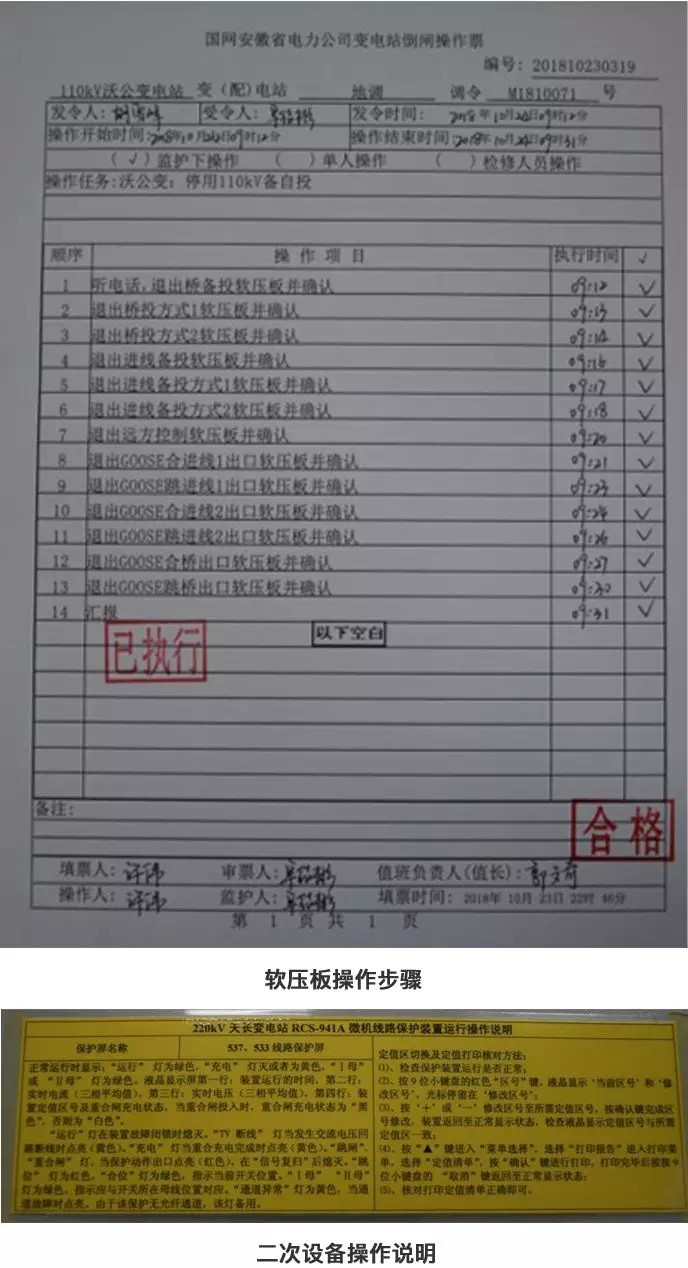 国网安徽省电力公司变电站倒闸操作票
编号: 201810230319
110kV沃公变电站 变(配)电站 地调 调令 M1810071 号
发令人: 受令人: 发令时间: 2018年10月24日09时12分
操作开始时间:2018年10月24日09时12分 操作结束时间:2018年10月24日09时31分
(√)监护下操作 ( )单人操作 ( )检修人员操作
操作任务:沃公变: 停用110kV备自投
顺序 操作项目 执行时间 √
1 听电话,退出桥备投软压板并确认 09:12 √
2 退出桥投方式1软压板并确认 09:13 √
3 退出桥投方式2软压板并确认 09:14 √
4 退出进线备投软压板并确认 09:16 √
5 退出进线备投方式1软压板并确认 09:17 √
6 退出进线备投方式2软压板并确认 09:18 √
7 退出远方控制软压板并确认 09:20 √
8 退出GOOSE合进线1出口软压板并确认 09:21 √
9 退出GOOSE跳进线1出口软压板并确认 09:23 √
10 退出GOOSE合进线2出口软压板并确认 09:24 √
11 退出GOOSE跳进线2出口软压板并确认 09:26 √
12 退出GOOSE合桥出口软压板并确认 09:27 √
13 退出GOOSE跳桥出口软压板并确认 09:30 √
14 汇报 09:31 √
以下空白
已执行
备注:
合格
填票人: 许伟 审票人: 值班负责人(值长):
操作人: 许伟 监护人: 填票时间: 2018年 10月 23日 22时 46分
第 1 页 共 1 页
软压板操作步骤
220kV 天长变电站 RCS-941A 微机线路保护装置运行操作说明
保护屏名称 537、533 线路保护屏
正常运行时显示:“运行” 灯为绿色,“充电” 灯灭或者为黄色,“Ⅰ母”
或 “Ⅱ母” 灯为绿色。液晶显示屏第一行: 装置运行的时间, 第二行:
实时电流 (三相平均值), 第三行: 实时电压 (三相平均值), 第四行: 装
置定值区号及重合闸充电状态, 当重合闸投入时, 重合闸充电状态为 “黑
色”, 否则为 “白色”。
“运行” 灯在装置故障闭锁时熄灭。“TV 断线” 灯当发生交流电压回
路断线时点亮 (黄色)。“充电” 灯当重合充电完成时点亮 (黄色)。“跳闸”、
“重合闸” 灯, 当保护动作出口点亮 (红色), 在 “信号复归” 后熄灭。“跳
位” 灯为红色, “合位” 灯为绿色, 指示当前开关位置。“Ⅰ母” “Ⅱ母”
灯为绿色, 指示应与开关所在母线位置对应。“通道异常” 灯为黄色, 当通
道故障时点亮。由于该保护无光纤通道, 该灯备用。
定值区切换及定值打印核对方法:
(1)、检查保护装置运行是否正常;
(2)、按 9 位小键盘的红色 “区号” 键, 液晶显示 ‘当前区号’ 和 ‘修
改区号’, 光标停留在 ‘修改区号’;
(3)、按 ‘+’ 或 ‘－’ 修改区号至所需定值区号, 按确认键完成区
号修改, 装置返回至正常显示状态, 检查液晶显示定值区号与所需
定值区一致;
(4)、按 “▲” 键进入 “菜单选择”, 选择 “打印报告” 进入打印菜
单, 选择 “定值清单”, 按 “确认” 键进行打印, 打印完毕后按
小键盘的 “取消” 键返回至正常显示状态;
(5)、核对打印定值清单正确即可。
二次设备操作说明